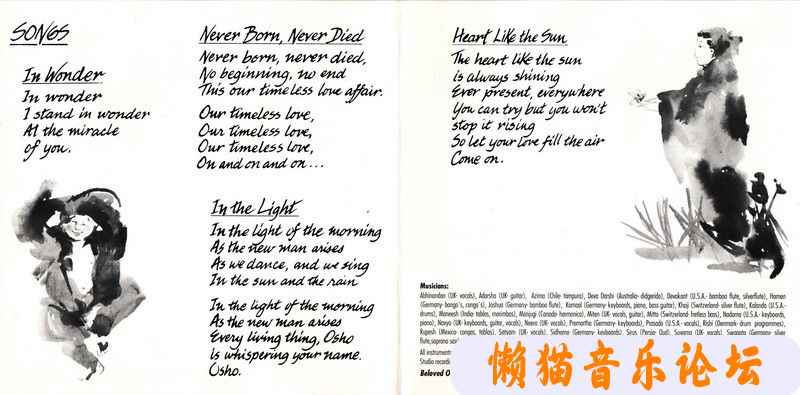 SONGS
In Wonder
In wonder
I stand in wonder
At the miracle
of you.
Never Born, Never Died
Never born, never died,
No beginning, no end
This our timeless love affair.
Our timeless love,
Our timeless love,
Our timeless love,
On and on and on...
In the Light
In the light of the morning
As the new man arises
As we dance, and we sing
In the sun and the rain
In the light of the morning
As the new man arises
Every living thing, Osho
Is whispering your name.
Osho.
Heart Like the Sun
The heart like the sun
is always shining
Ever present, everywhere
You can try but you won't
stop it rising
So let your love fill the air
Come on.
Musicians:
Abhinandan (UK- vocals), Adarsha (UK- guitar), Azima (Chile- tampura), Deva Darshi (Australia- didgerido), Devakant (U.S.A.- bamboo flute, silverflute), Haman
(Germany- bongo's, conga's), Joshua (Germany- bamboo flute), Kamaal (Germany- keyboards, piano, bass guitar), Khoji (Switzerland- silver flute), Kalanda (U.S.A.-
drums), Maneesh (India- tables, marimbas), Manjuji (Canada- harmonica), Miten (UK- vocals, guitar), Mitta (Switzerland- fretless bass), Nadama (U.S.A.- keyboards,
piano), Navyo (UK- keyboards, guitar, vocals), Neera (UK- vocals), Premartha (Germany- keyboards), Prasado (U.S.A.- vocals), Rishi (Denmark- drum programmes),
Rupesh (Mexico- congas, tables), Satyam (UK- vocals), Sidhama (Germany- keyboards), Sirus (Persia- Oud), Suvarna (UK- vocals), Swaasta (Germany- silver
flute, soprano
All instruments
Studio
Beloved
懒猫音乐论坛